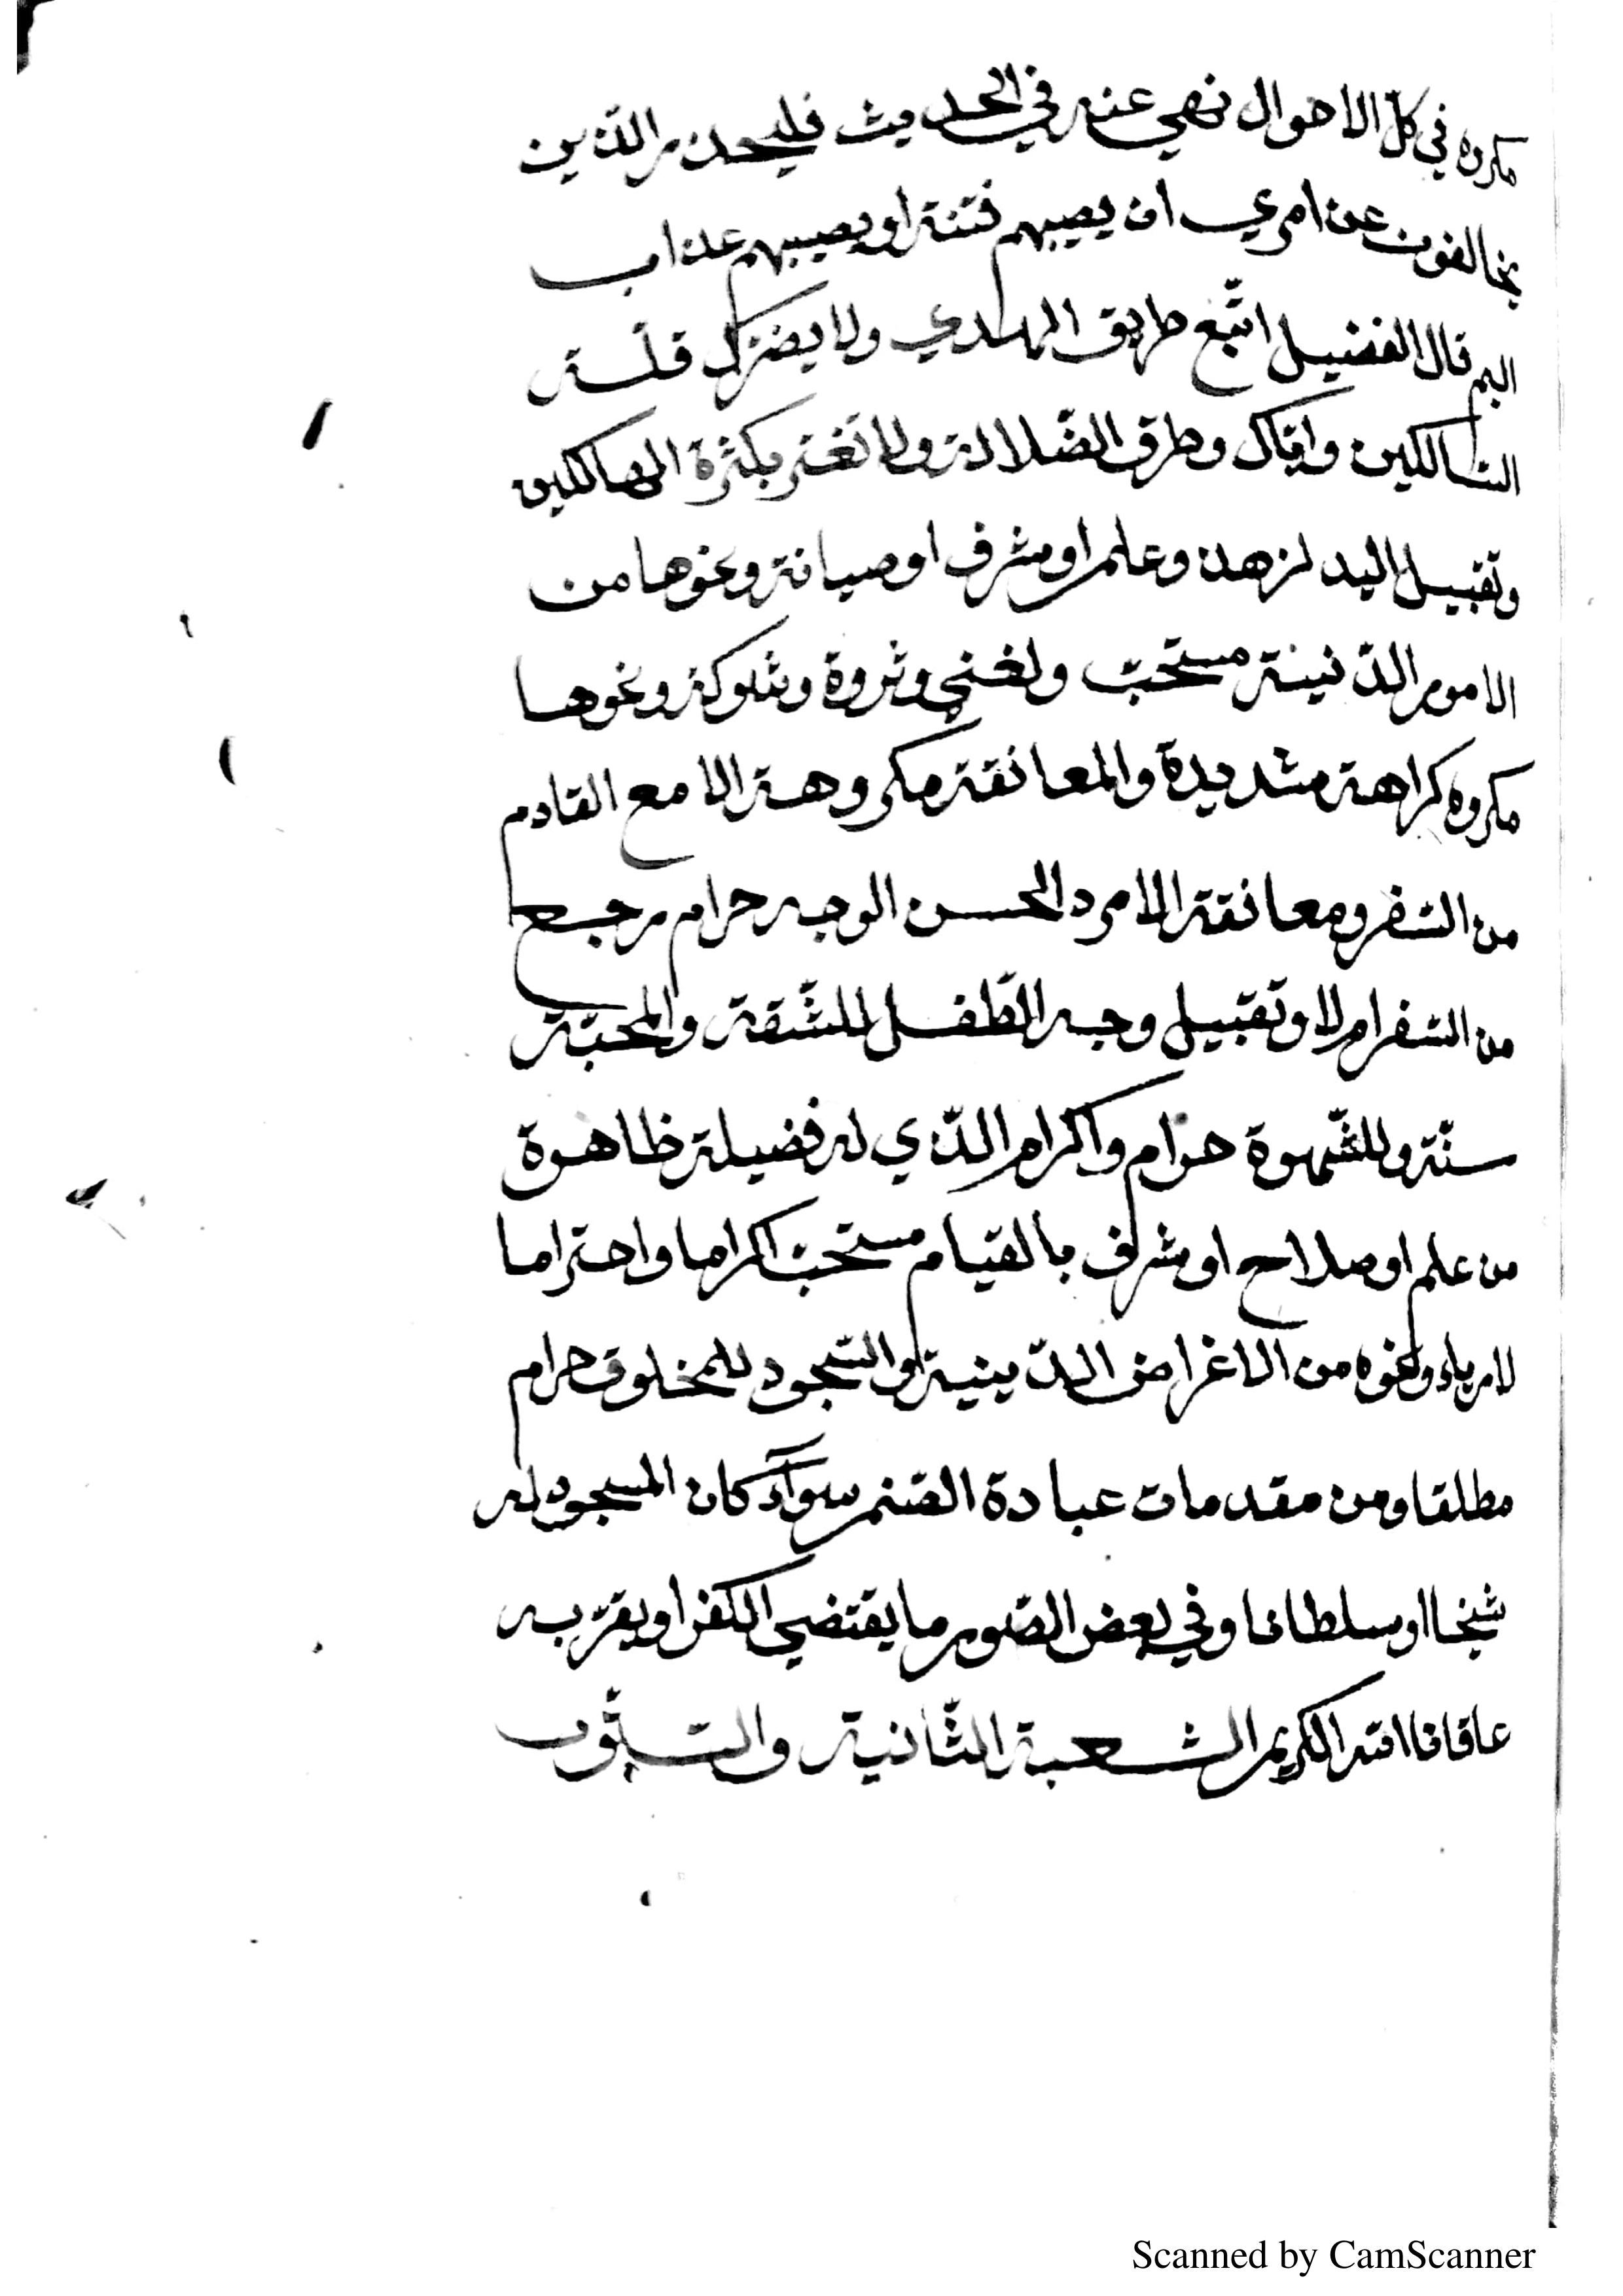 مكروه في كلّ الاحوال نهي عنه في الحديث فليحذر الذين
يخالفون عن امري ان يصيبهم فتنة او يصيبهم عذاب
اليم قال الفضيل اتّبع طريق الهدي ولا يضرّك قلّة
السّالكين وايّاك وطرق الضّلالة ولا تغتر بكثرة الهالكين
وتقبيل اليد لزهد وعلم او شرف او صيانة ونحوها من
الامور الدّنينة مستحبّ ولغني وثروة وشوكة ونحوها
مكروه كراهة شديدة والمعانقة مكروهة الا مع القادم
من السّفر ومعانقة الامرد الحسن الوجه حرام مرجع
من السّفر ام لا وتقبيل وجه الطّفل للشّقة والمحبّة
سنّة وللشّهوة حرام واكرام الذّي له فضيلة ظاهرة
من علم او صلاح او شرف بالقيام مستحبّ اكراما واحتراما
لا رياء ونحوه من الاغراض الدّينية والسّجود للمخلوق حرام
مطلقا ومن مقدمات عبادة الصّنم سوآء كان المسجود له
شيخا او سلطانا وفي بعض الصّور ما يقتضي الكفر او يقرّبه
عافانا الله الكريم الشعبة الثّانية والسّتّون
Scanned by CamScanner